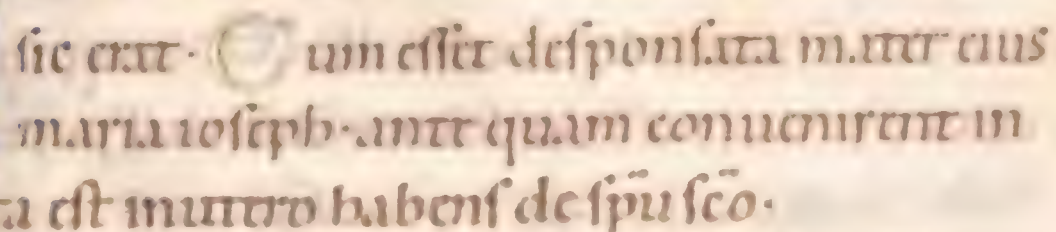 sic erat. Cum esset desponsata mater eius
maria ioseph. ante quam conuenirent in
a est in utero habens de spū scō.